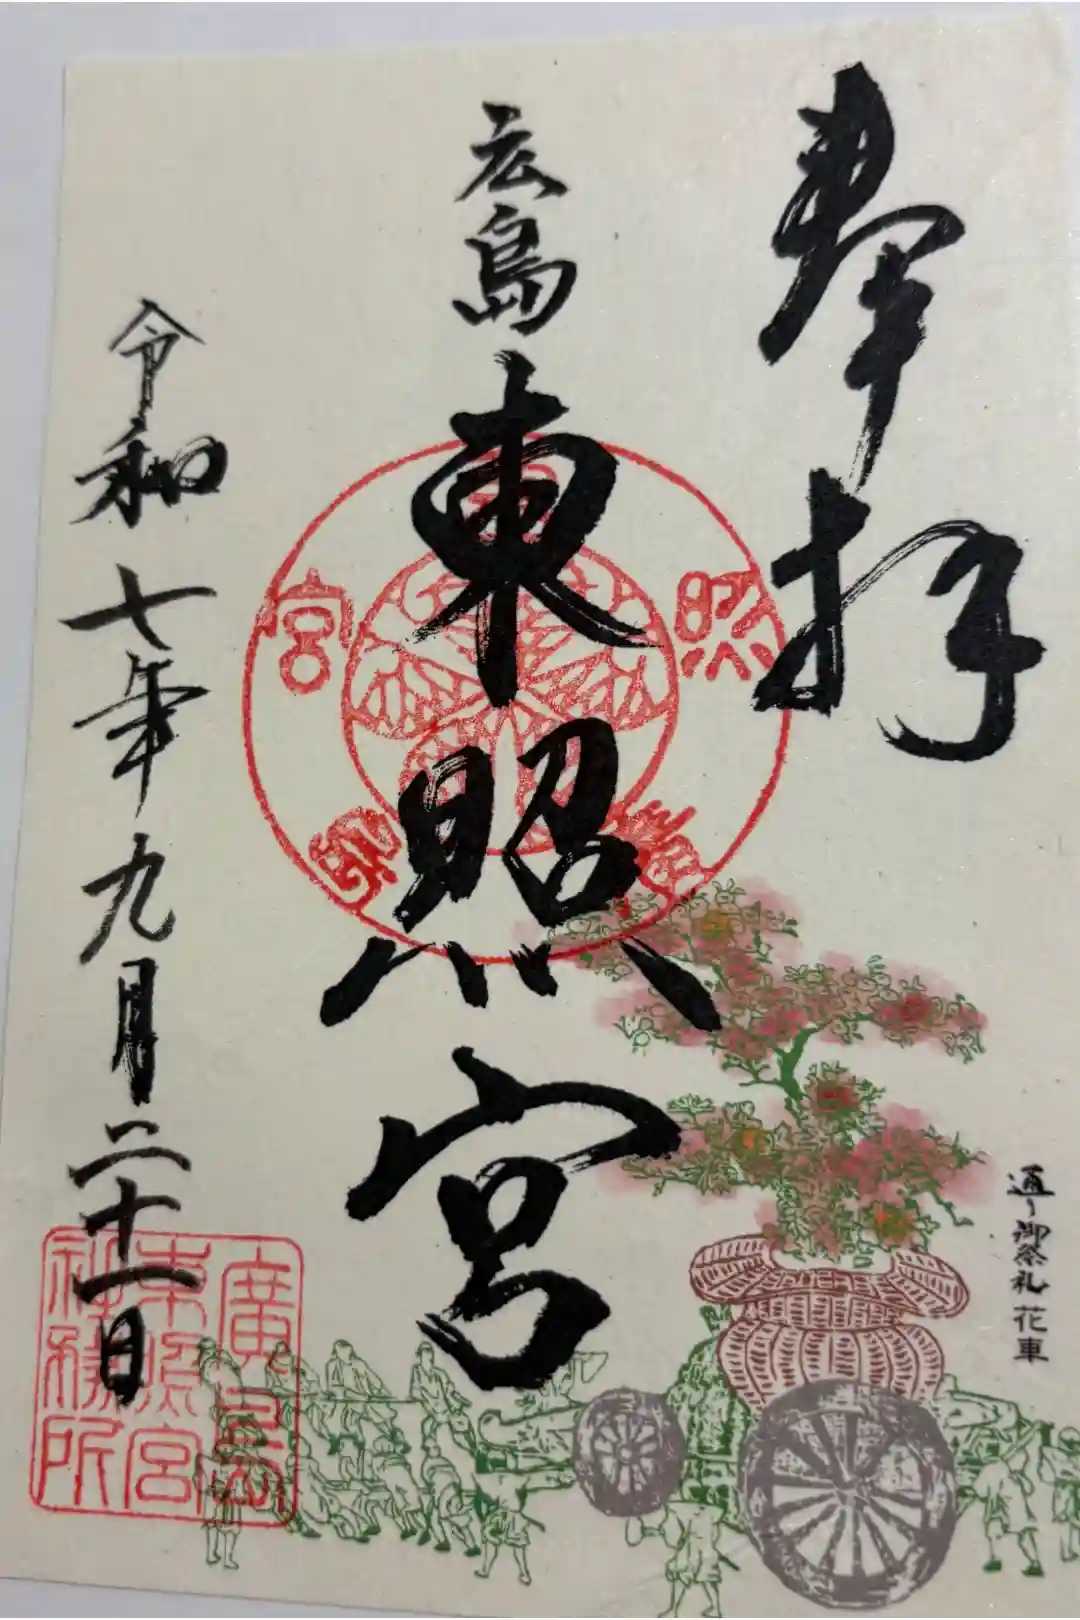 奉拝
広島
東照宮
令和七年九月二十一日
通り御祭礼 花車
廣島
東照宮
社務所
照
宮